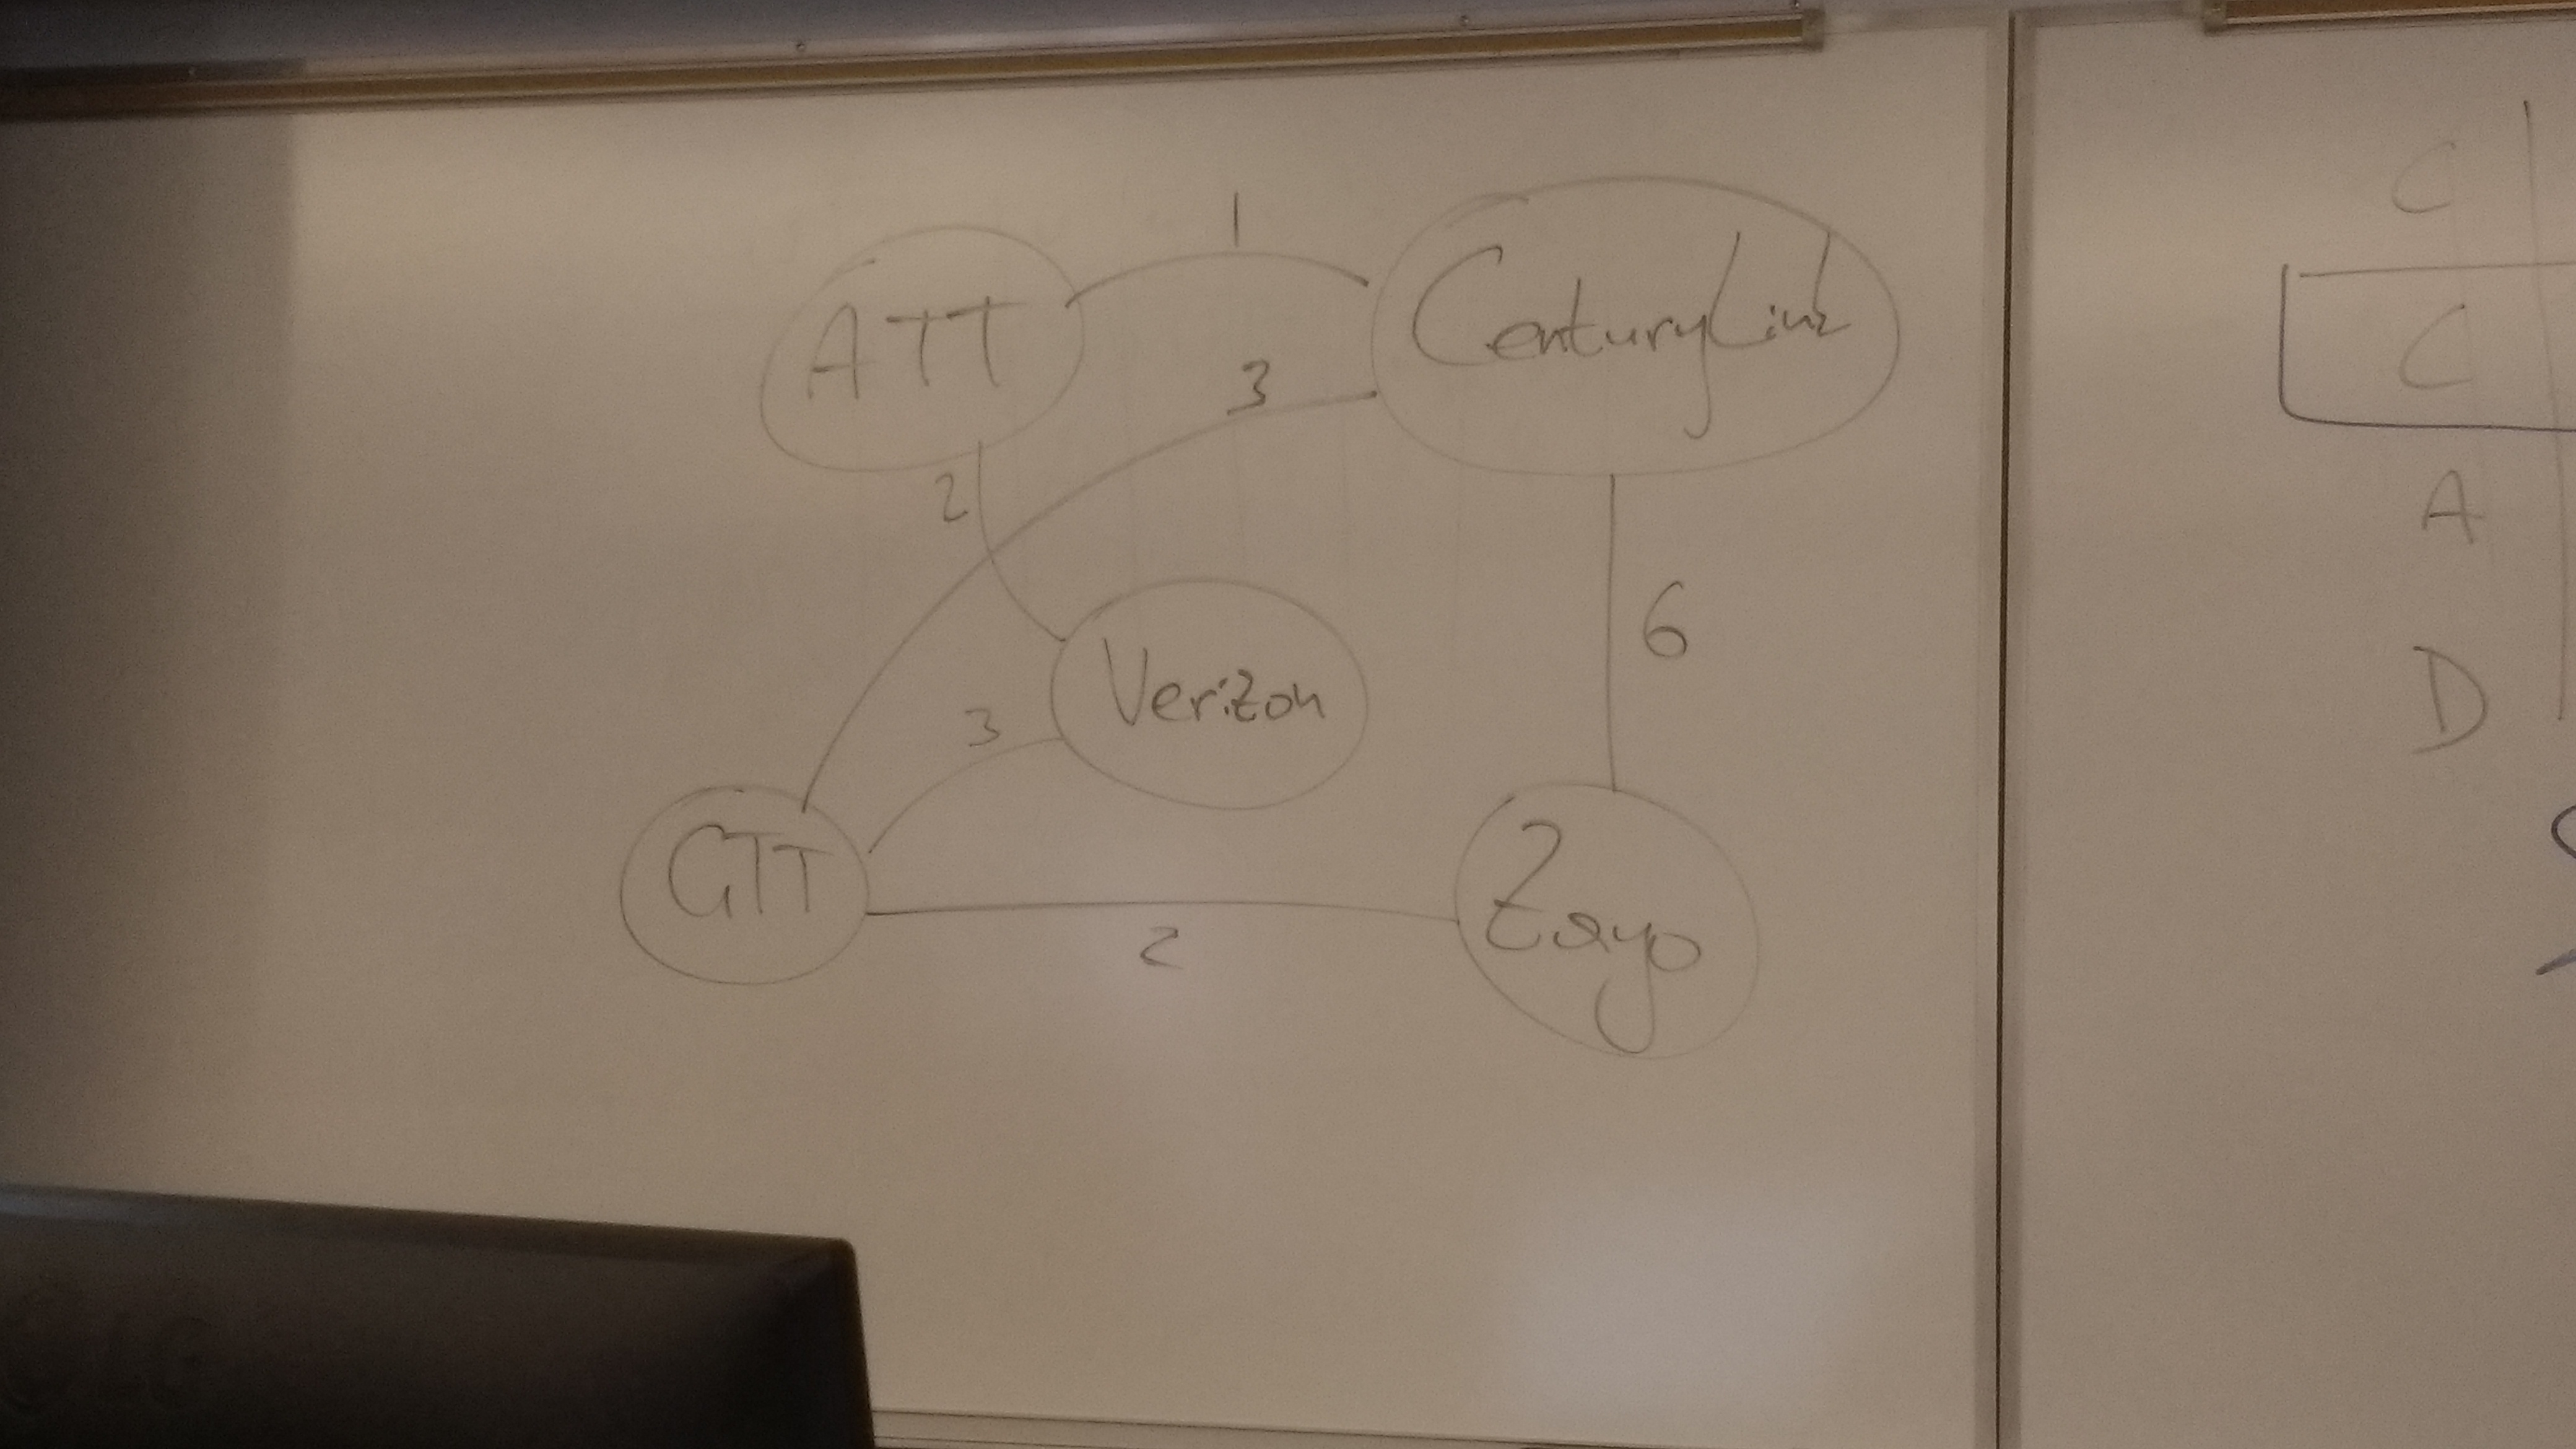 1
ATT
CenturyLink
3
2
6
Verizon
3
GTT
Zayo
2
C
C
A
D